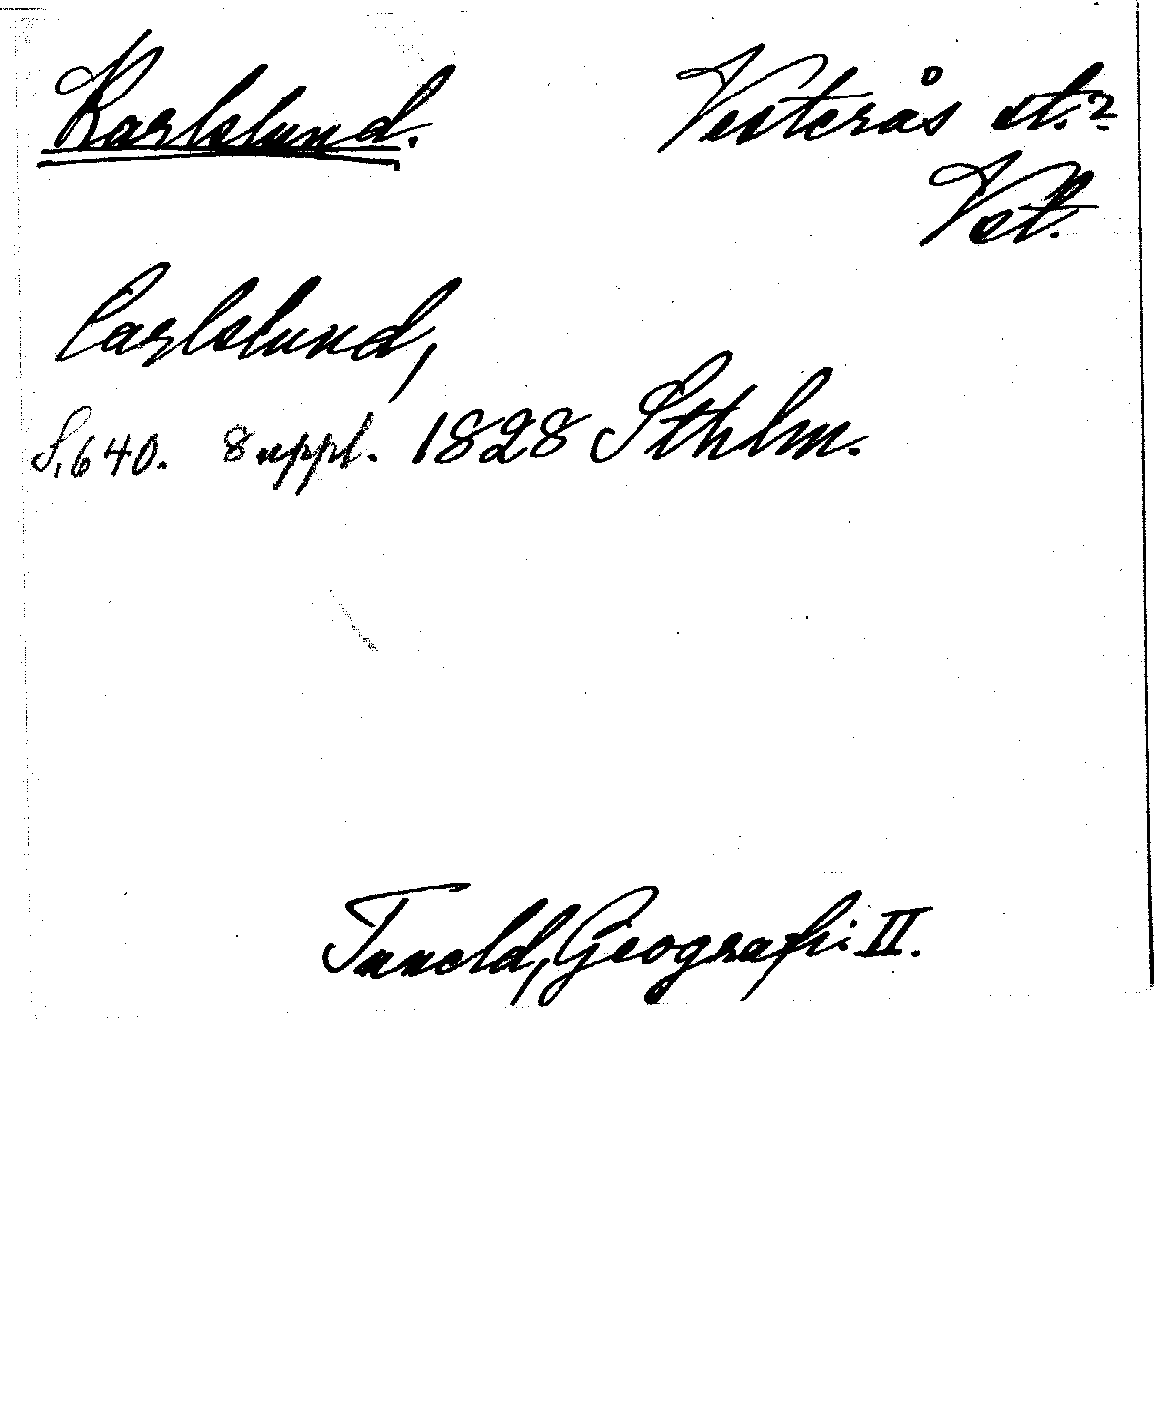 Karlslund. Vesterås st.?
Vst.
Carlslund,
S. 640. 8 uppl. 1828 Sthlm.
Tuneld, Geografi II.